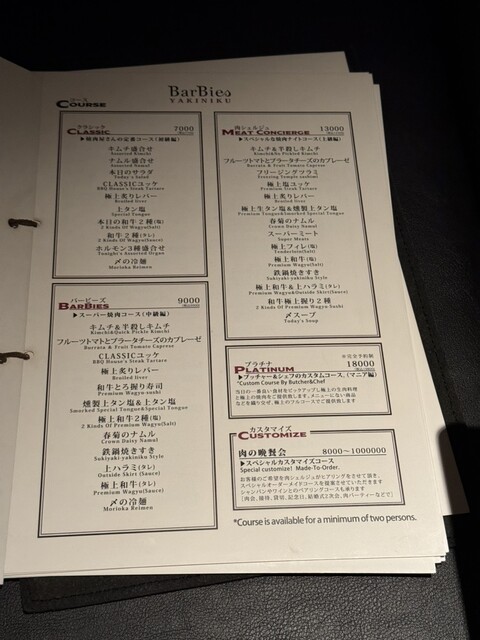 BarBies
YAKINIKU
コース
COURSE
クラシック
CLASSIC
7000
▶焼肉屋さんの定番コース(初級編)
キムチ盛合せ
Assorted Kimchi
ナムル盛合せ
Assorted Namul
本日のサラダ
Today's Salad
CLASSICユッケ
BBQ House's Steak Tartare
極上炙りレバー
Broiled liver
上タン塩
Special Tongue
本日の和牛2種(塩)
2 Kinds Of Wagyu(Salt)
和牛2種(タレ)
2 Kinds Of Wagyu(Sauce)
ホルモン3種盛合せ
Tonight's Assorted Organ
〆の冷麺
Morioka Reimen
バービーズ
BARBIES
9000
▶スーパー焼肉コース(中級編)
キムチ&半殺しキムチ
Kimchi&Quick Pickle Kimchi
フルーツトマトとブラータチーズのカプレーゼ
Burrata & Fruit Tomato Caprese
CLASSICユッケ
BBQ House's Steak Tartare
極上炙りレバー
Broiled liver
和牛とろ握り寿司
Premium Wagyu-sushi
燻製上タン塩&上タン塩
Smorked Special Tongue&Special Tongue
極上和牛2種(塩)
2 Kinds Of Premium Wagyu(Salt)
春菊のナムル
Crown Daisy Namul
鉄鍋焼きすき
Sukiyaki-yakiniku Style
上ハラミ(タレ)
Outside Skirt (Sauce)
極上和牛(タレ)
Premium Wagyu(Sauce)
〆の冷麺
Morioka Reimen
肉シェルジュ
MEAT CONCIERGE
13000
▶スペシャルな焼肉ナイトコース(上級編)
キムチ&半殺しキムチ
フルーツトマトとブラータチーズのカプレーゼ
Burrata & Fruit Tomato Caprese
フリージングツラミ
Freezing Temple sashimi
極上塩ユッケ
Premium Steak Tartare
極上炙りレバー
Broiled liver
極上生タン塩&燻製上タン塩
Premium Tongue&Smorked Special Tongue
春菊のナムル
Crown Daisy Namul
スーパーミート
Super Meats
極上フィレ(塩)
Tenderloin (Salt)
極上和牛(塩)
Premium Wagyu(Salt)
鉄鍋焼きすき
Sukiyaki-yakiniku Style
極上和牛&上ハラミ(タレ)
Premium Wagyu&Outside Skirt(Sauce)
和牛極上握り2種
2 Kinds Of Premium Wagyu-Sushi
〆スープ
Today's Soup
プラチナ
PLATINUM
※完全予約制
18000
▶ブッチャー&シェフのカスタムコース。(マニア編)
*Custom Course By Butcher&Chef
カスタマイズ
CUSTOMIZE
肉の晩餐会 8000〜1000000
▶スペシャルカスタマイズコース
Special customize! Made-To-Order.
お客様のご希望を肉シェルジュがヒアリングをさせて頂き、
スペシャルオーダーメイドコースを提案させていただきます
シャンパンやワインとのペアリングコースも承ります
[肉会、接待、貸切、記念日、結婚式2次会、肉パーティーなどで]
*Course is available for a minimum of two persons.